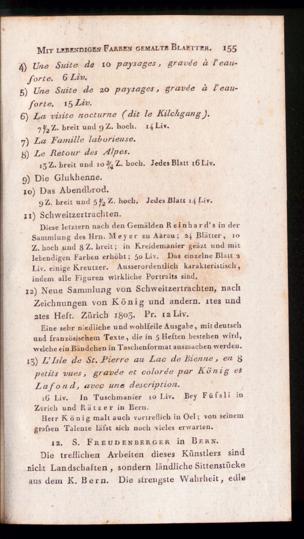 MIT LEBENDIGEN FARBEN GEMALTE BLAETTER. 155
4) Une Suite de 10 paysages, gravée à l'eau-
forte. 6 Liv.
5) Une Suite de 20 paysages, gravée à l'eau-
forte. 15 Liv.
6) La visite nocturne (dit le Kilchgang).
7¾ Z. breit und 9 Z. hoch. 14 Liv.
7) La Famille laborieuse.
8) Le Retour des Alpes.
13 Z. breit und 10¾ Z. hoch. Jedes Blatt 16 Liv.
9) Die Glukhenne.
10) Das Abendbrod.
9 Z. breit und 5¾ Z. hoch. Jedes Blatt 14 Liv.
11) Schweitzertrachten.
Diese letztern nach den Gemälden Reinhard's in der
Sammlung des Hrn. Meyer zu Aarau; 24 Blätter, 10
Z. hoch und 8 Z. breit; in Kreidemanier geäzt und mit
lebendigen Farben erhöht; 50 Liv. Das einzelne Blatt 2
Liv. einige Kreutzer. Ausserordentlich karakteristisch,
indem alle Figuren wirkliche Portraits sind.
12) Neue Sammlung von Schweitzertrachten, nach
Zeichnungen von König und andern. 1tes und
2tes Heft. Zürich 1803. Pr. 12 Liv.
Eine sehr niedliche und wohlfeile Ausgabe, mit deutsch
und französischem Texte, die in 5 Heften bestehen wird,
welche ein Bändchen in Taschenformat ausmachen werden.
13) L'Isle de St. Pierre au Lac de Bienne, en 8
petits vues, gravée et colorée par König et
Lafond, avec une description.
16 Liv. In Tuschmanier 10 Liv. Bey Füssli in
Zürich und Rätzer in Bern.
Herr König malt auch vortreflich in Oel; von seinem
grossen Talente lässt sich noch vieles erwarten.
12. S. FREUDENBERGER in BERN.
Die treflichen Arbeiten dieses Künstlers sind
nicht Landschaften, sondern ländliche Sittenstücke
aus dem K. Bern. Die strengste Wahrheit, edle